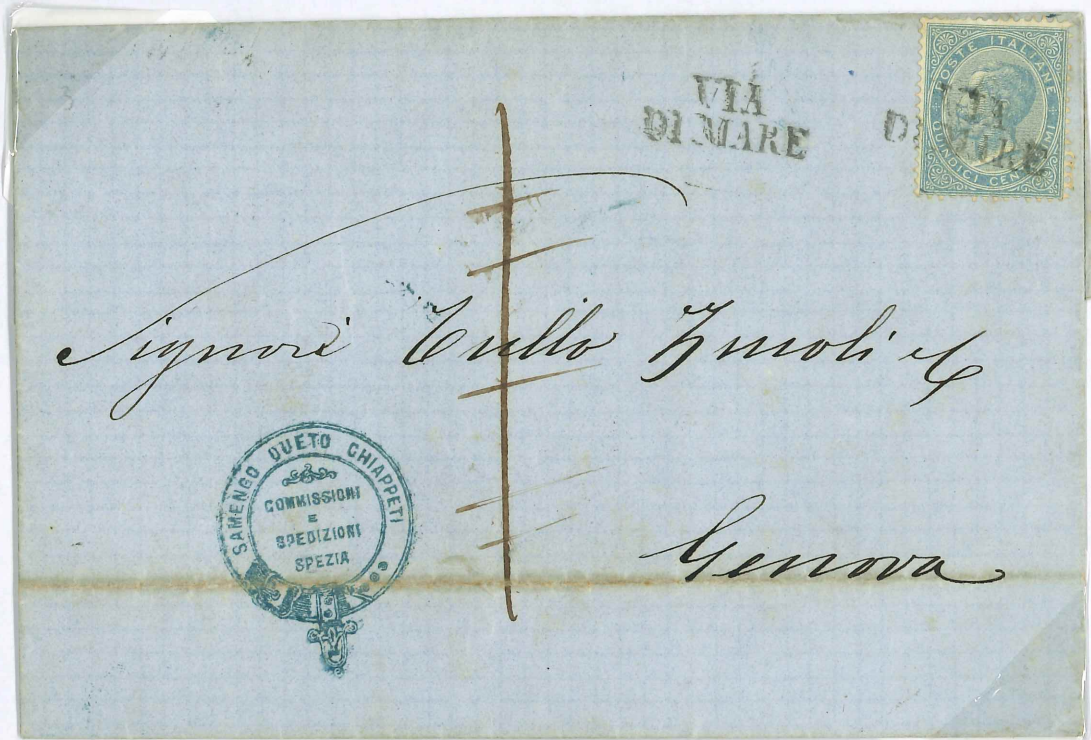 VIA
DI MARE
VIA
DI MARE
POSTE ITALIANE
QUINDICI CENTESIMI
Signori Tullo Zuccoli e C
Genova
SAMENGO QUETO CHIAPPETI
COMMISSIONI
E
SPEDIZIONI
SPEZIA